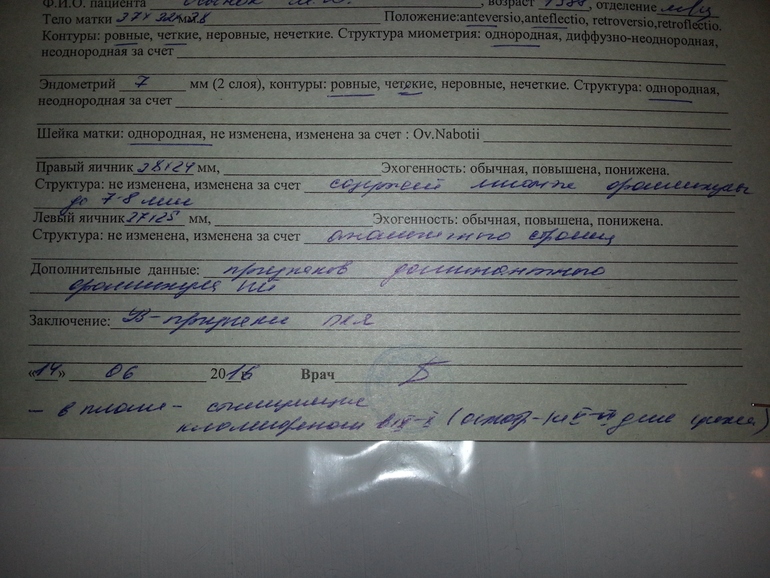 Ф.И.О. пациента М.Ю. , возраст , отделение
Тело матки 37х32х28 Положение:anteversio,anteflectio, retroversio,retroflectio.
Контуры: ровные, четкие, неровные, нечеткие. Структура миометрия: однородная, диффузно-неоднородная,
неоднородная за счет
Эндометрий 7 мм (2 слоя), контуры: ровные, четские, неровные, нечеткие. Структура: однородная,
неоднородная за счет
Шейка матки: однородная, не изменена, изменена за счет : Ov.Nabotii
Правый яичник 28х24 мм, Эхогенность: обычная, повышена, понижена.
Структура: не изменена, изменена за счет содержит мелкие фолликулы
до 7-8 мм
Левый яичник 27х25 мм, Эхогенность: обычная, повышена, понижена.
Структура: не изменена, изменена за счет аналогичного строения
Дополнительные данные: признаков доминантного
фолликула нет
Заключение: УЗ-признаки ПКЯ
«14» 06 2016 Врач
– в плане – стимуляция
кломифеном в (осмотр- дни цикла)